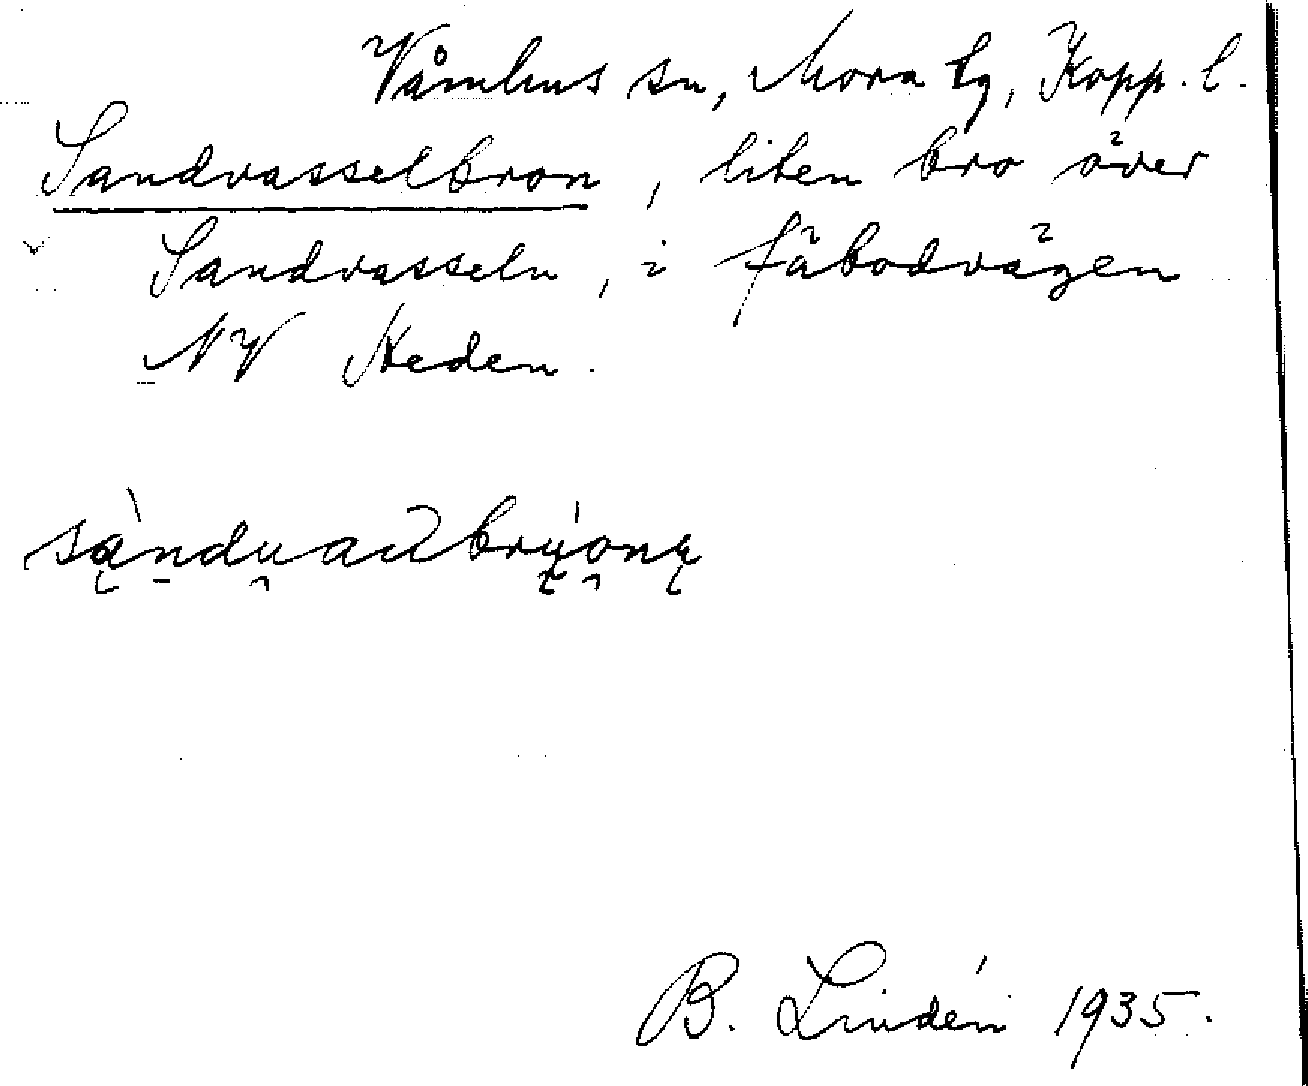 Våmhus sn, Mora tg, Kopp. l.
Sandvasselbron, liten bro över
Sandvasseln, i fäbodvägen
NV Heden.
B. Lindén 1935.